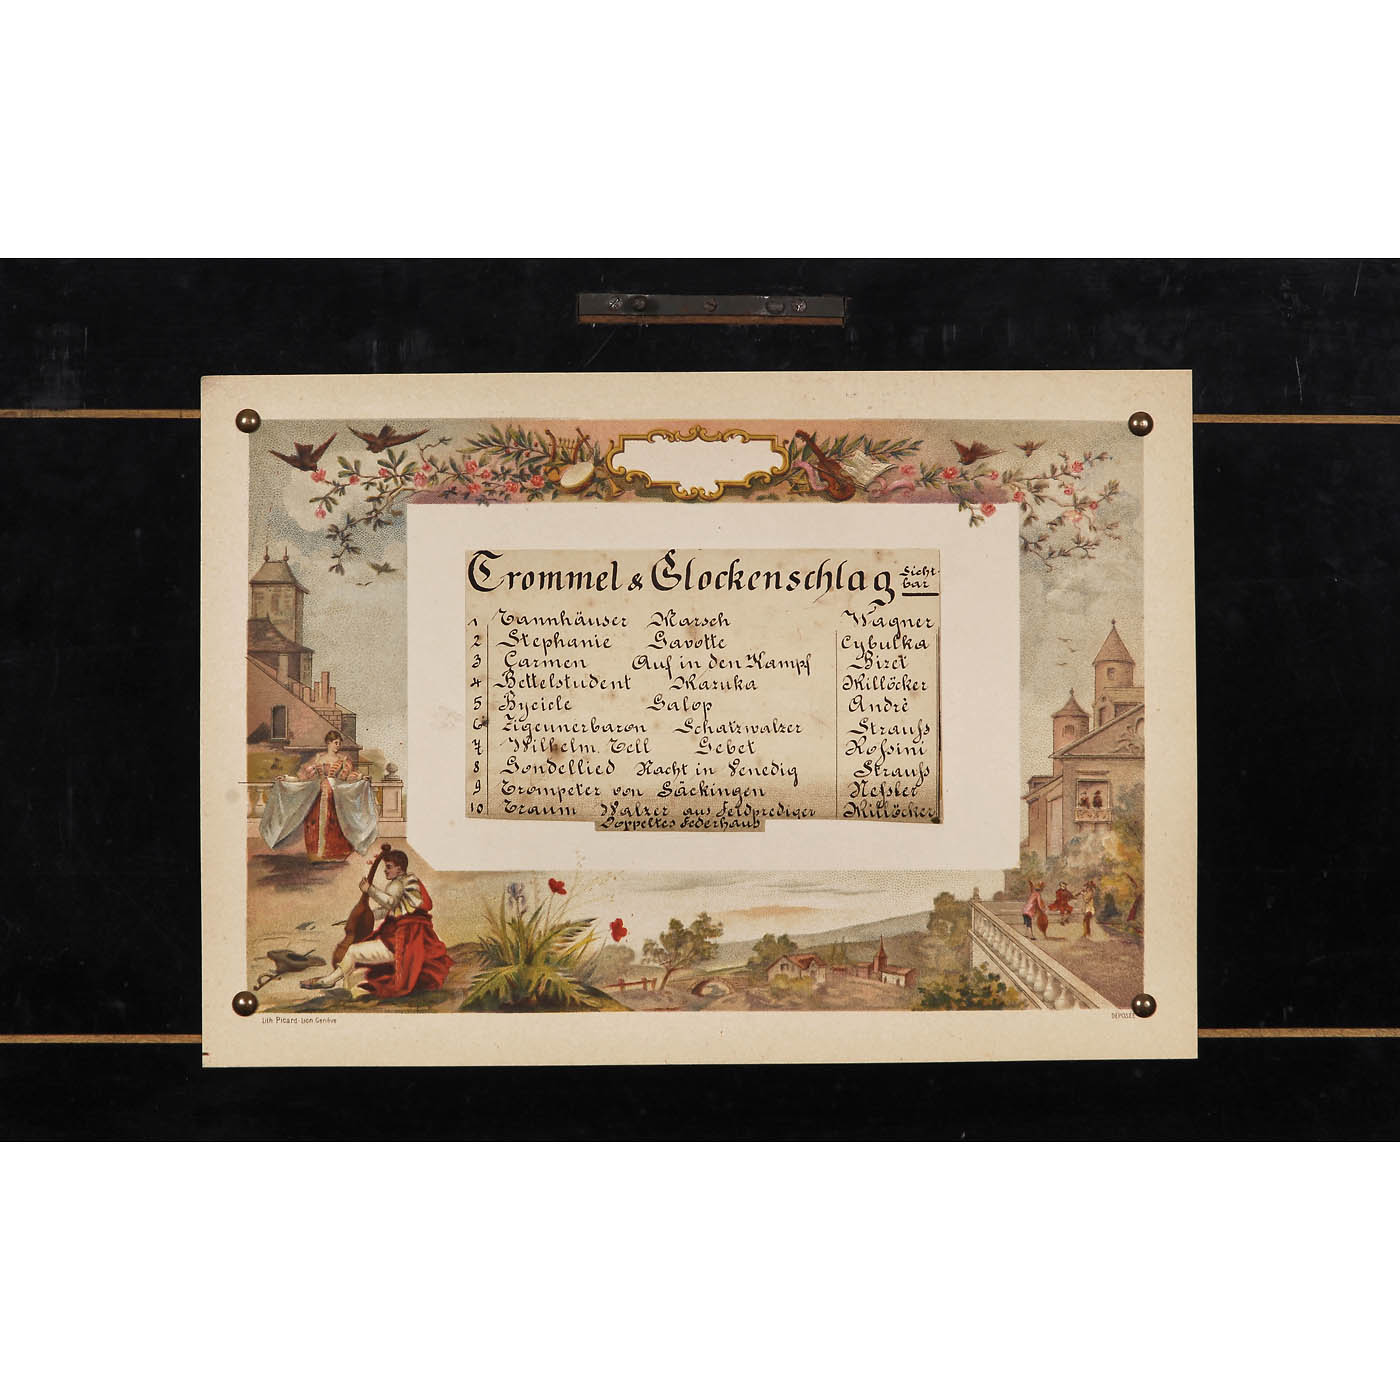 Trommel & Glockenschlag Sicht-
bar
1 Tannhäuser Marsch Wagner
2 Stephanie Gavotte Cybulka
3 Carmen Auf in den Kampf Bizet
4 Bettelstudent Mazuka Millöcker
5 Byciele Galop Andrè
6 Zigeunerbaron Schatzwalzer Strauss
7 Wilhelm Tell Gebet Rossini
8 Gondellied Nacht in Venedig Strauss
9 Trompeter von Säckingen Nessler
10 Traum Walzer aus Feldprediger Millöcker
Doppeltes Federhaus
Lith. Picard-Lion Genève
DÉPOSÉ